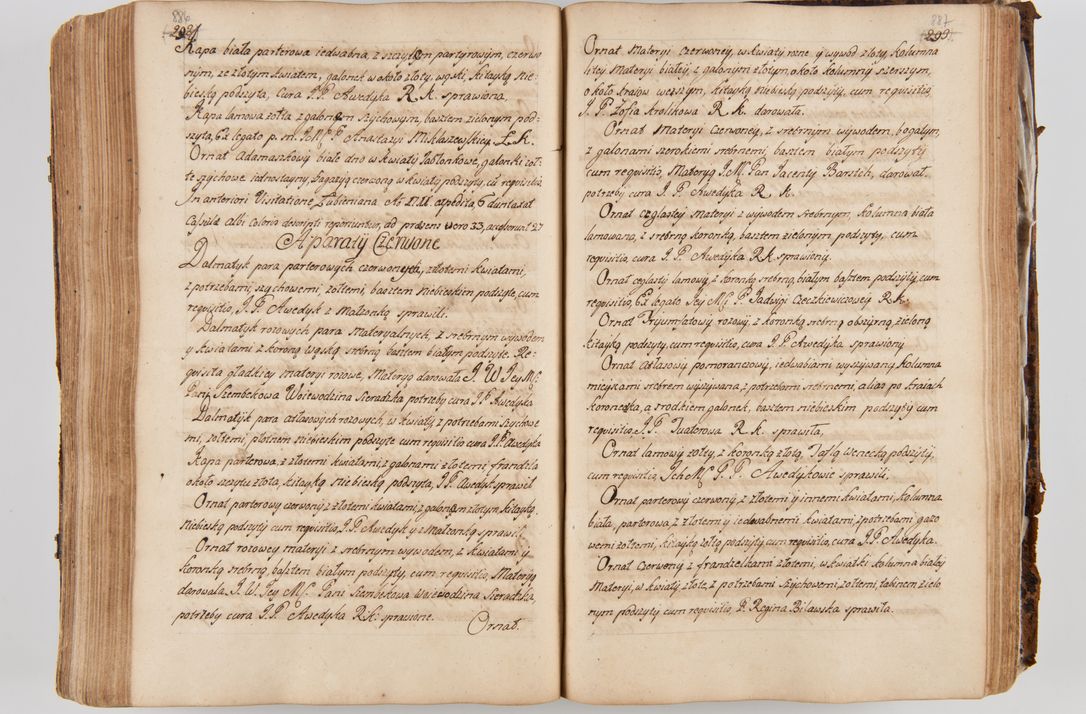 886
298
Kapa biała parterowa iedwabna, z szczytem partyrowym, czerwo
nym, ze złotym kwiatem, galonek w około złoty, wąski, kitayką nie:
bieską podszyta, cura J.P. Awedyka R. K. sprawiona,
Kapa lamowa żołta z galonem szychowym, basztem zielonym pod:
szyta, Ex legato p. m. J. M. P. Anastazyi Mikłaszewskiey R. K.
Ornat Adamaszkowy białe dno w kwiaty Jabłonkowe, galonki żoł
te szychowe iednostayny, bagazyą czerwoną w kwiaty podszyty, cū requisitis
In anteriori Visitatione Łubieniana Ao 1711. expedita, 6 duntaxat
Casulæ albi coloris descripti reperiuntur, ad præsens vero 33, augment 27
Aparaty Czerwone
Dalmatyk para parterowych czerwonych, złotemi kwiatami,
z potrzebami, szychowemi, żołtemi, basztem niebieskim podszyte, cum
requisitis, J.P. Awedyk z Małżonką sprawili.
Dalmatyk rożowych para materyalnych, z srebrnym wywodem
y kwiatami z koroną wąską srebrną basztem białym podszyte. Re:
quisita gładkiey materyi rożowe, Materyą darowała J. W Jey Mć
Pani Szembekowa Woiewodzina Sieradzka potrzeby cura J.P. Awedyka
Dalmatyk para atłasowych rożowych, w kwiaty z potrzebami szychowe
mi, żołtemi, płotnem niebieskim podszyte cum requisitis cura J.P. Awedyka
Kapa parterowa, z złotemi kwiatami, z galonami złotemi, frandzla
około szczytu złota, kitayką niebieską podszyta, J.P. Awedyk sprawił
Ornat parterowy czerwony z złotemi kwiatami, z galonem złotym, kitayką
niebieską podszyty cum requisitis, J.P. Awedyk y z Małżonką sprawił.
Ornat rożowey materyi z srebrnym wywodem, z kwiatami y
koronką srebrną, basztem białym podszyty, cum requisitis, Materyą
darowała J. W. Jey Mć Pani Szembekowa Woiewodzina Sieradzka,
potrzeby cura J.P. Awedyka R.K. sprawione.
Ornat.
887
299
Ornat Materyi czerwoney, w kwiaty rożne y wywod złoty, kolumna
litey materyi białey, z galonym złotym, około kolumny szerszym,
około kraiow węższym, kitayką niebieską podszyty, cum requisitis
J. P. Zofia Krolikowa R. K. darowała.
Ornat Materyi czerwoney, z srebrnym wywodem, bogatym,
z galonami szerokiemi srebrnemi, basztem białym podszyty
cum requisitis, Materyą J.M. Pan Jacenty Bartsch, darował,
potrzeby cura J. P. Awedyka R. K.
Ornat ceglastey materyi z wywodem srebrnym, kolumna biała
lamowana, z srebrną koronką, basztem zielonym podszyty, cum
requisitis, cura J.P. Awedyka R.K. sprawiony.
Ornat ceglasty lamowy z koronką srebrną, białym basztem podszyty, cum
requisitis, Ex legato Jey Mć P. Jadwigi Czeczkiewiczowey R.K.
Ornat Tryumfatowy rożowy, z koronką srebrną obszyrną, zieloną
kitayką podszyty, cum requisitis, cura J.P. Awedyka sprawiony
Ornat atłasowy pomoranczowy, iedwabiami wyszywany, kolumna
mieyscami srebrem wyszywana, z potrzebami srebrnemi, alias po kraiach
koroneczka, a srodkiem galonek, basztem niebieskim podszyty cum
requisitis. J.P. Tuatorowa R. K. sprawiła,
Ornat lamowy żołty, z koronką złotą, Taftą wenecką podszyty,
cum requisitis, Jch Mć P.P. Awedykowie sprawili,
Ornat parterowy czerwony z złotemi y innemi kwiatami, kolumna
biała, parterowa z złotemi y iedwabnemi kwiatami, z potrzebami gazo
wemi żołtemi, kitayką żołtą podszyty, cum requisitis, cura J.P. Awedyka.
Ornat czerwony z frandzelkami złotemi, w kwiatki kolumna białey
Materyi, w kwiaty złote, z potrzebami szychowemi żołtemi, tabinem zielo
nym podszyty cum requisitis, P. Regina Bilawska sprawiła.